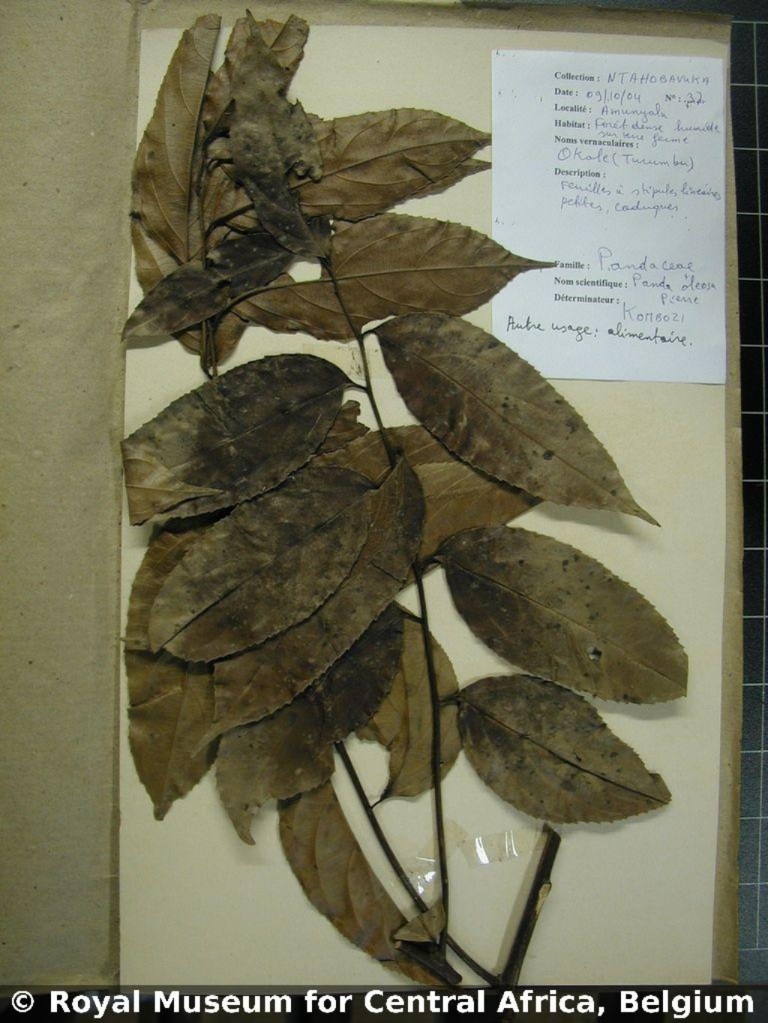 Collection : NTAHOBAVUKA
Date : 09/10/04 N° : 37
Localité : Amunyala
Habitat : Forêt dense humide
sur terre ferme
Noms vernaculaires :
Okale (Tucumbu)
Description :
Feuilles à stipules linéaires
petites, caduques.
Famille : Pandaceae
Nom scientifique : Panda oleosa
Pierre
Déterminateur :
KOMBOZI
Autre usage : alimentaire.
© Royal Museum for Central Africa, Belgium